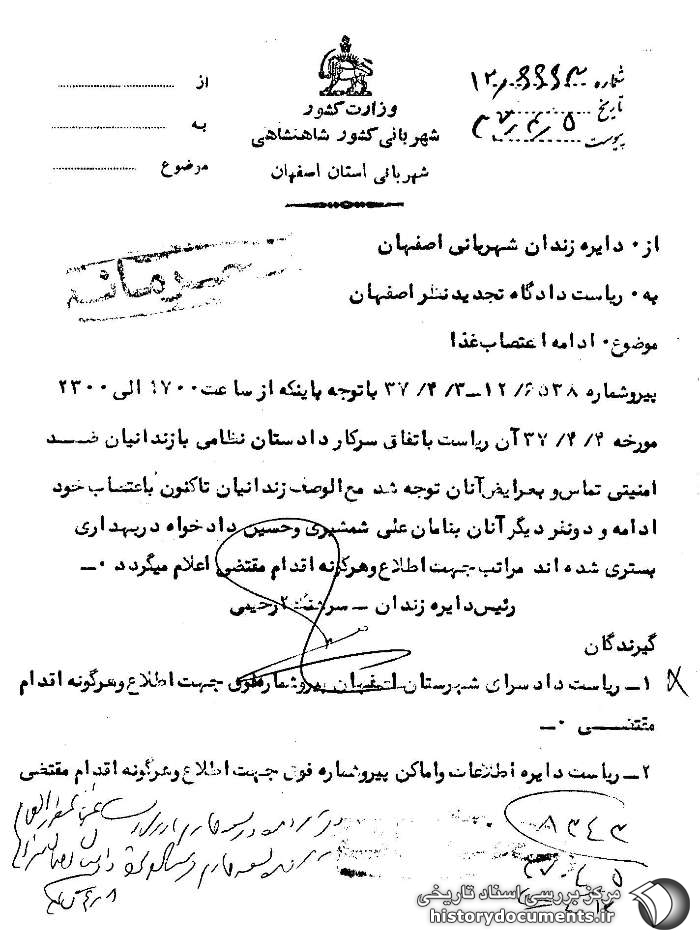 وزارت کشور
شهربانی کشور شاهنشاهی
شهربانی استان اصفهان
شماره
تاریخ
پیوست
از
به
موضوع
محرمانه
از۰ دایره زندان شهربانی اصفهان
به۰ ریاست دادگاه تجدید نظر اصفهان
موضوع۰ ادامه اعتصاب غذا
پیروشماره ۱۲/۶۵۳۸ــ۳۷/۴/۳ باتوجه باینکه از ساعت ۱۷۰۰ الی ۲۳۰۰
مورخه ۳۷/۴/۴ آن ریاست باتفاق سرکار دادستان نظامی بازندانیان ضد
امنیتی تماس و بعرایض آنان توجه شد مع الوصف زندانیان تاکنون باعتصاب خود
ادامه و دونفر دیگر آنان بنامان علی شمشیری وحسین دادخواه در بهداری
بستری شده اند مراتب جهت اطلاع وهرگونه اقدام مقتضی اعلام میگردد ۰ــ
رئیس دایره زندان ــ سرهنگ ۲ رحیمی
گیرندگان
۱ــ ریاست دادسرای شهرستان اصفهان پیروشماره فوق جهت اطلاع وهرگونه اقدام
مقتضی ۰ــ
۲ــ ریاست دایره اطلاعات واماکن پیروشماره فوق جهت اطلاع وهرگونه اقدام مقتضی
۸۳۴۳
مرکز بررسی اسناد تاریخی
historydocuments.ir